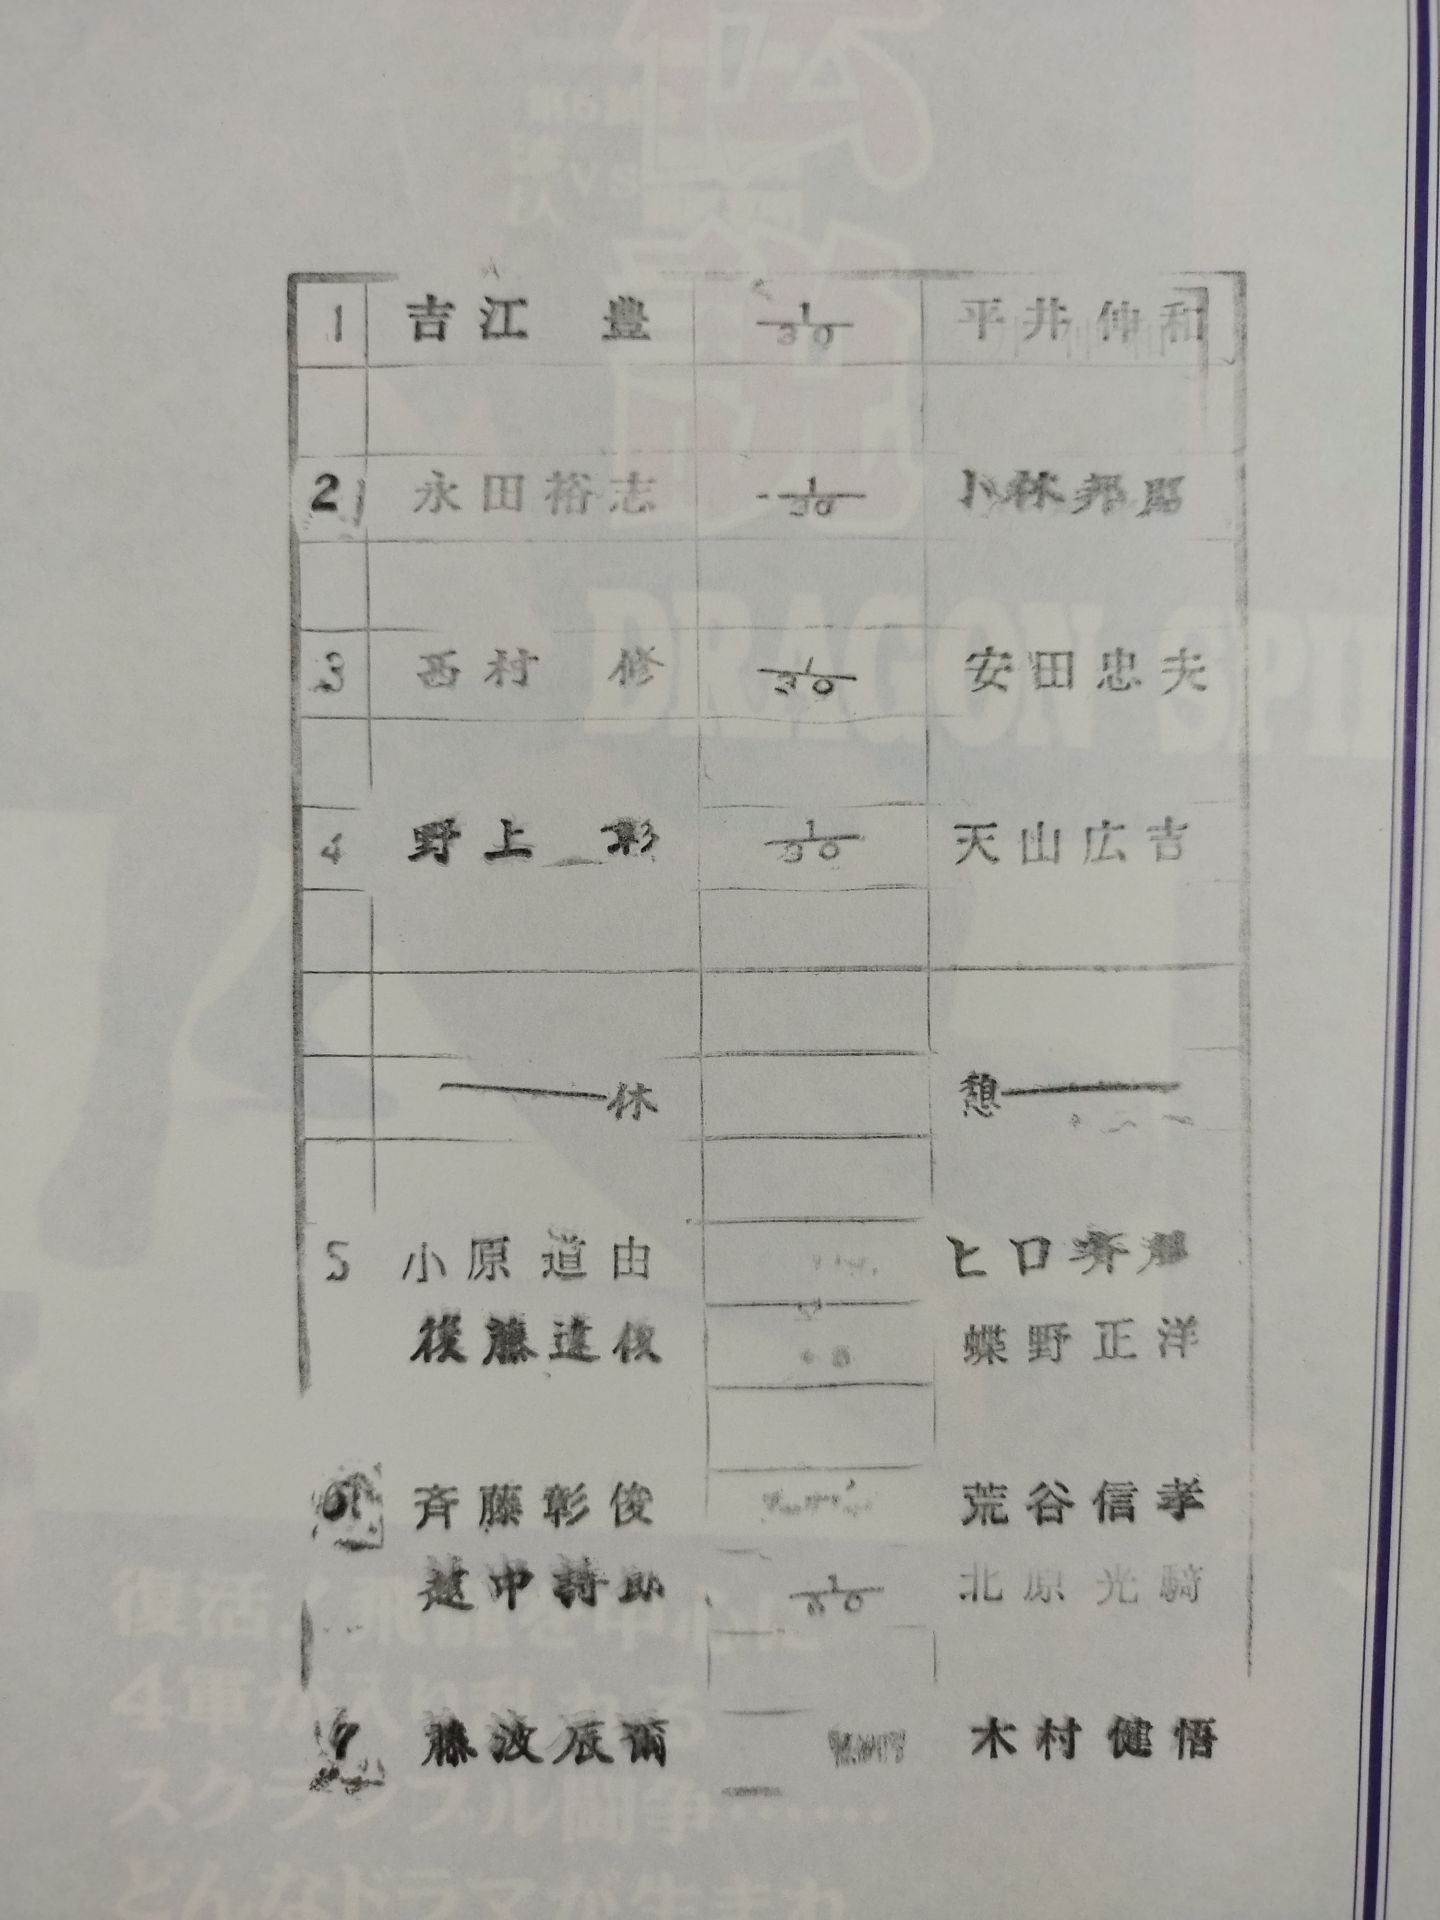 1 吉江 豊 1/30 平井伸和
2 永田裕志 1/30 小林邦昭
3 西村 修 1/30 安田忠夫
4 野上 彰 1/30 天山広吉
休 憩
5 小原道由 ヒロ斉藤
後藤達俊 蝶野正洋
6 斉藤彰俊 荒谷信孝
越中詩郎 北原光騎
7 藤波辰爾 木村健悟
VS
DRAGON SPI
復活
4軍が入り乱れる
スクランブル闘争……
どんなドラマが生まれ